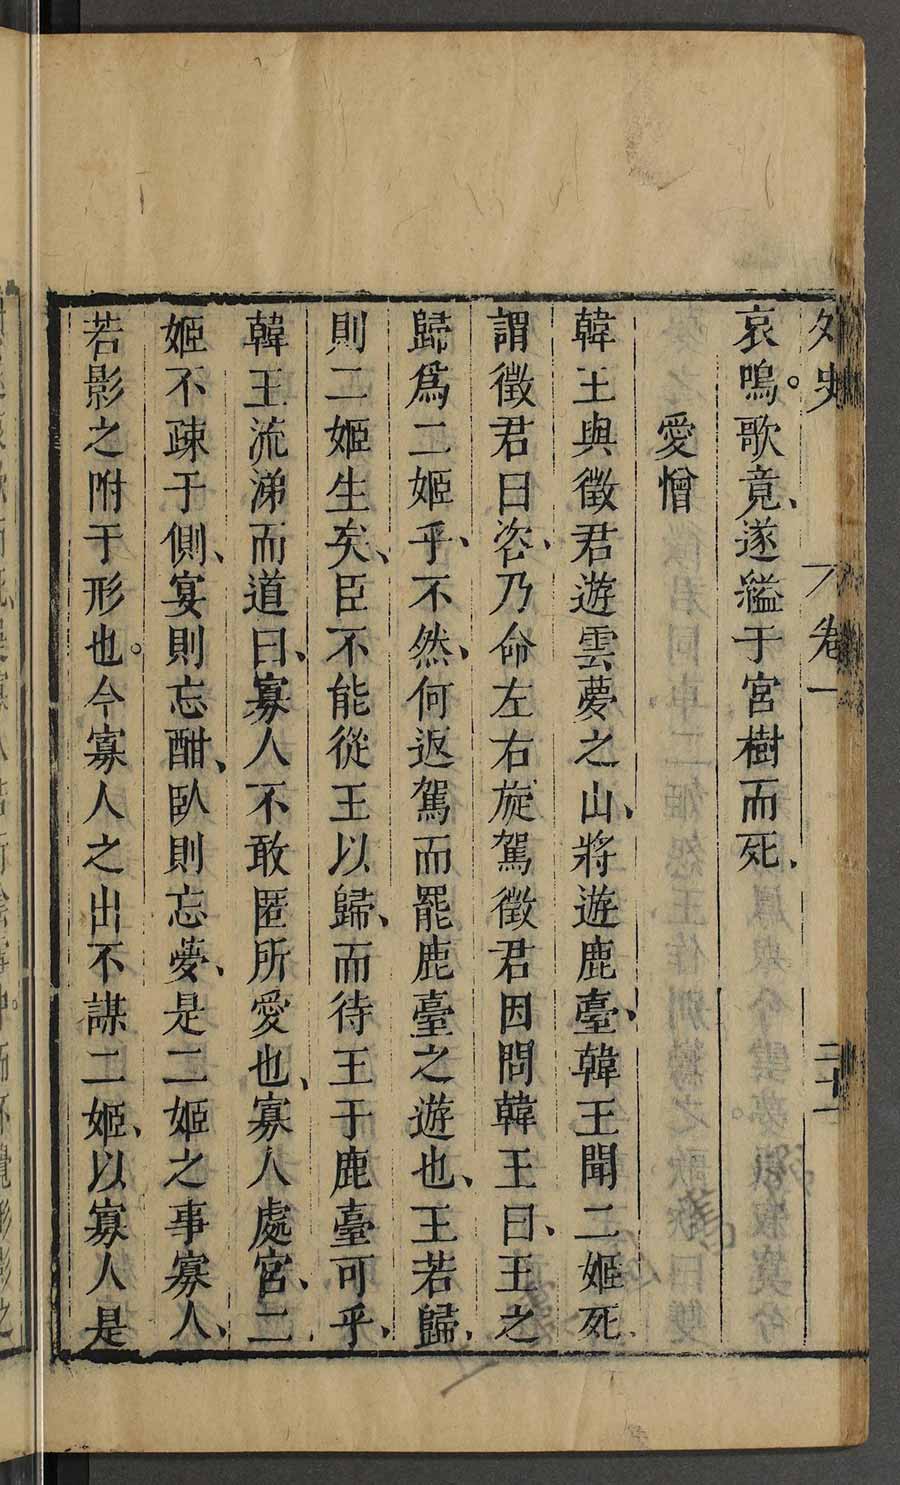 外史
卷一
二十一
哀鳴。歌竟、遂縊于宮樹而死、
愛憎
韓王與徵君遊雲夢之山、將遊鹿臺、韓王聞二姬死、
謂徵君曰、咨、乃命左右旋駕徵君因問韓王曰、王之
歸爲二姬乎、不然、何返駕而罷鹿臺之遊也、王若歸、
則二姬生矣、臣不能從王以歸、而待王于鹿臺可乎、
韓王流涕而道曰、寡人不敢匿所愛也、寡人處宮、二
姬不疎于側、宴則忘酣、臥則忘夢、是二姬之事寡人、
若影之附于形也。今寡人之出不謀二姬、以寡人是